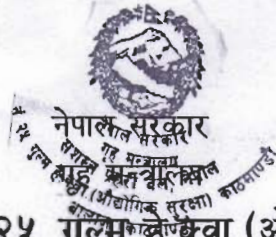 नेपाल सरकार
गृह मन्त्रालय
नेपाल सरकार
गृह मन्त्रालय
सशस्त्र प्रहरी बल, नेपाल
नं २५ गुल्म हेक्वा (औद्योगिक सुरक्षा) काठमाण्डौ
२५ गुल्म हेक्वा (औ